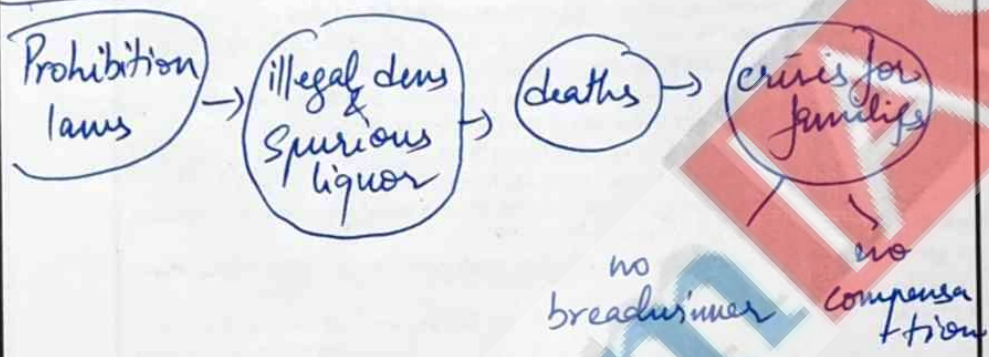 Prohibition
laws
illegal dens
&
Spurious
liquor
deaths
crisis for
families
no
breadwinner
no
compensa
ttion